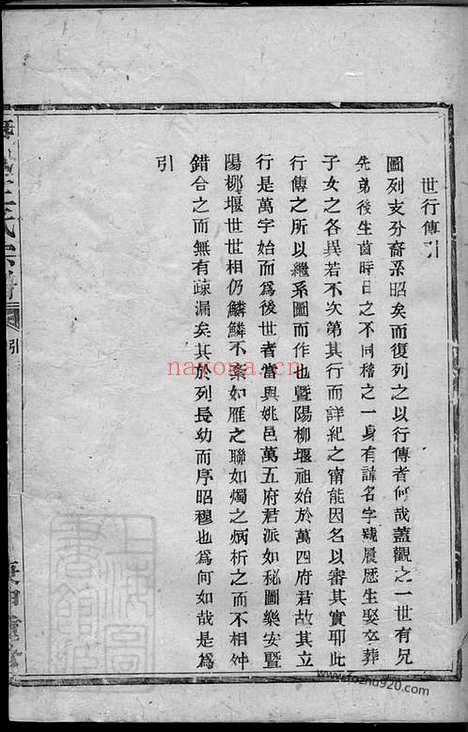 世行傳引
圖列支分裔系昭矣而復列之以行傳者何哉蓋觀之一世有兄
先弟後生齒時日之不同稽之一身有諱名字號履歷生娶卒葬
子女之各異若不次第其行而詳紀之甯能因名以審其實耶此
行傳之所以繼系圖而作也暨陽柳堰祖始於萬四府君故其立
行是萬字始而為後世者當與姚邑萬五府君派如秘圖樂安暨
陽柳堰世世相仍鱗鱗不紊如雁之聯如燭之炳析之而不相舛
錯合之而無有疎漏矣其於列長幼而序昭穆也為何如哉是為
引
氏宗譜
引
nayona.cn
www.fozhu920.com